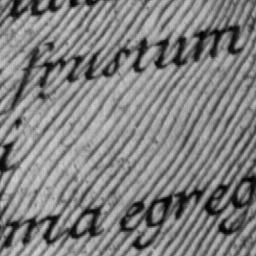 frustum
i
ma egreg